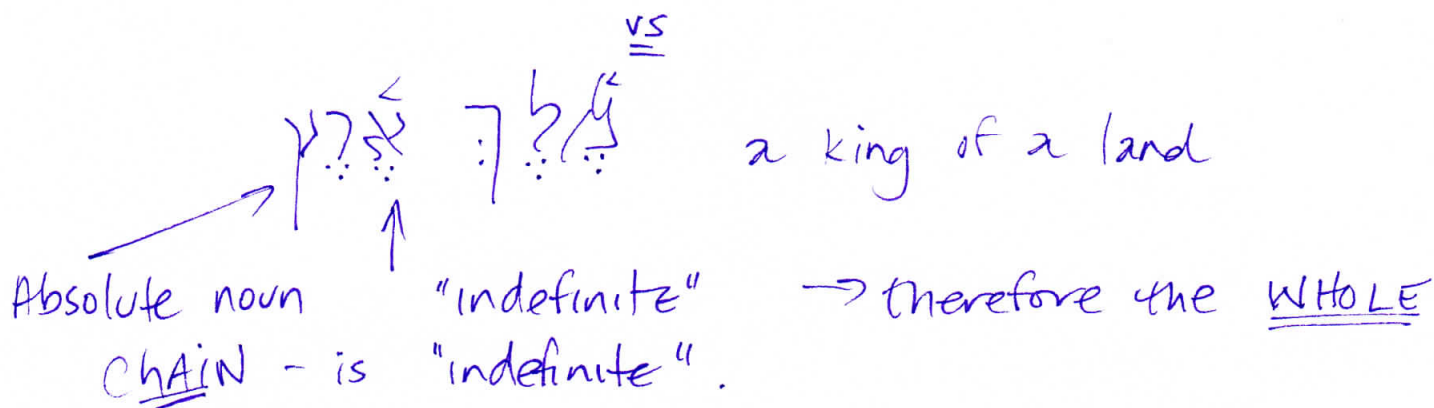 vs
מֶ֫לֶךְ אֶ֫רֶץ a king of a land
Absolute noun "indefinite" → therefore the WHOLE
ChAiN - is "indefinite".